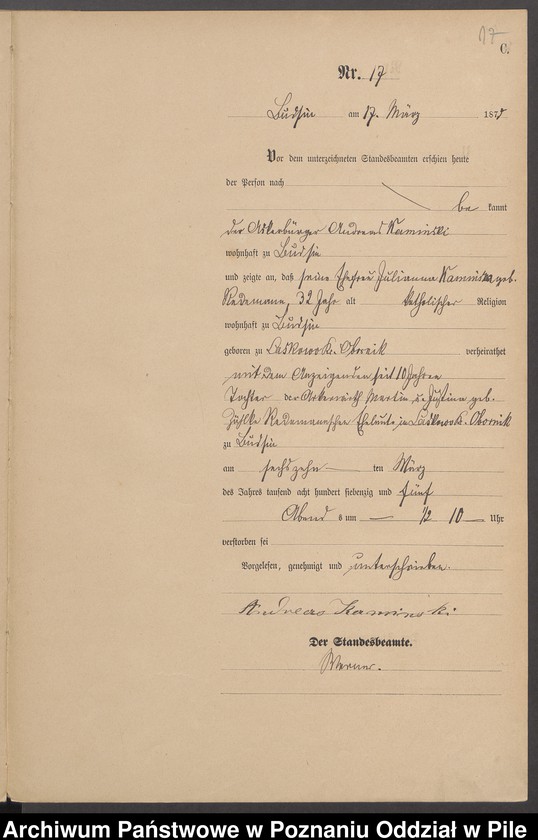 17
C.
Nr. 17
Budsin am 17. März 1875
Vor dem unterzeichneten Standesbeamten erschien heute
der Person nach
be kannt
der Ackerbürger Andreas Kaminski
wohnhaft zu Budsin
und zeigte an, daß seine Ehefrau Julianna Kaminska geb.
Redemann, 32 Jahr alt katholischer Religion
wohnhaft zu Budsin
geboren zu Laskowo K. Obornik verheirathet
mit dem Anzeigenden seit 10 Jahren
Tochter der Ackerwirth Martin u. Justina geb.
Zühlke Redemannschen Eheleute in Laskowo K. Obornik
zu Budsin
am sechszehn ten März
des Jahres tausend acht hundert siebenzig und fünf
Abend s um ½ 10 Uhr
verstorben sei
Vorgelesen, genehmigt und unterschrieben.
Andreas Kaminski
Der Standesbeamte.
Werner.
Archiwum Państwowe w Poznaniu Oddział w Pile